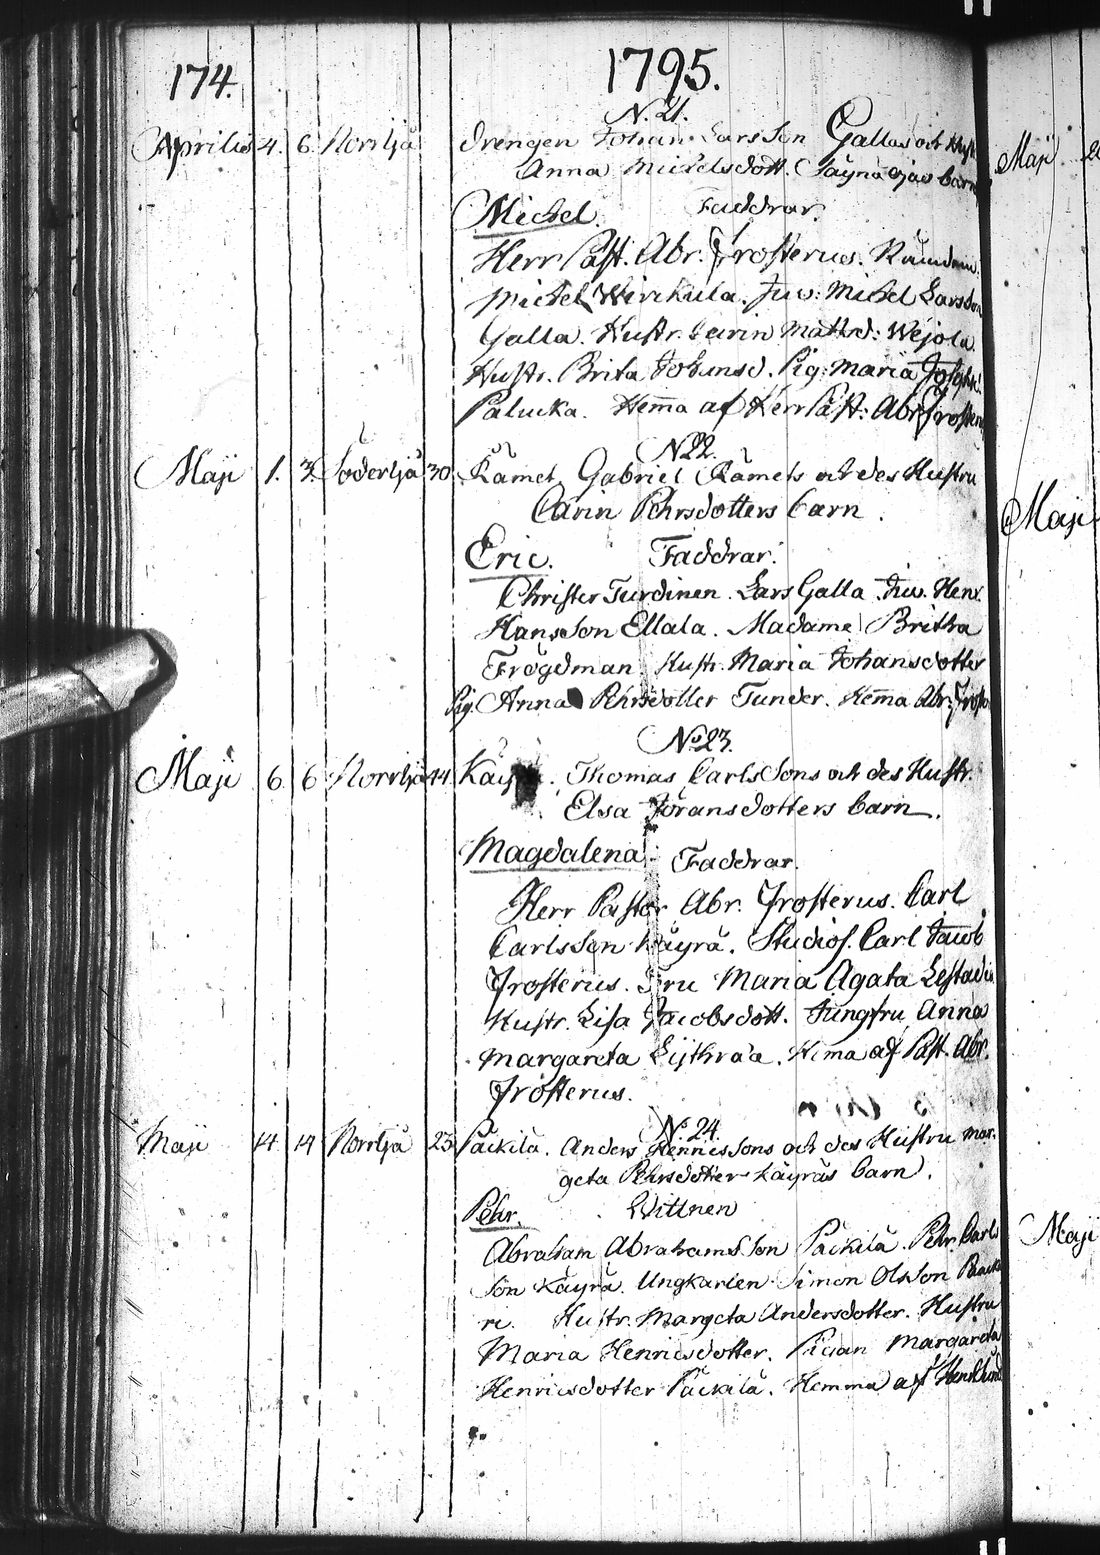 174.
1795.
N. 21.
Aprilis 4. 6. Norrbÿ Drengen Johan Larsson Gallas och Hust
Anna Michelsdott. barn
Michel. Faddrar.
Herr Past. Abr. Frosterus.
Michel Wirckula. Michel Larsson
Galla. Hustr. Carin Mattsd: Wejola
Hustr. Brita Johansd. Pig: Maria Josephs:
Palucka. Hema af Herr Past: Abr Frosterus
N 22.
Maji 1. 3. Söderbÿ 30 Rämet, Gabriel Rämets och des Hustru
Carin Pehrsdotters barn.
Eric. Faddrar.
Christer Turdinen. Lars Galla. Henr.
Hansson Ellala. Madame Britha
Frögdman. Hustr. Maria Johansdotter
Pig. Anna Pehrsdotter Tunder. Hema Abr: Frost.
N. 23.
Maji 6 6 Norrbÿ 44. Käyrä, Thomas Carlssons och des Hustr.
Elsa Jöransdotters barn.
Magdalena. Faddrar.
Herr Pastor Abr. Frosterus. Carl
Carlsson Käyrä. Studios. Carl Jacob
Frosterus. Fru Maria Agata Lestadia
Hustr. Lisa Jacobsdott. Jungfru Anna
Margareta Lÿthræa. Hema af Past. Abr.
Frosterus.
N. 24
Maji 14 14 Norrbÿ 25 Päckilä. Anders Henrissons och des Hustru Mar-
geta Pehrsdotter Käyräs barn.
Pehr. Wittnen
Abraham Abrahamsson Päckilä. Pehr Carls
son Käyrä. Ungkarlen Simon Olsson
ri. Hustr. Margeta Andersdotter. Hustru
Maria Henricsdotter. Pigan Margareta
Henricsdotter Päckilä. Hemma af
Maji
Maji
Maji